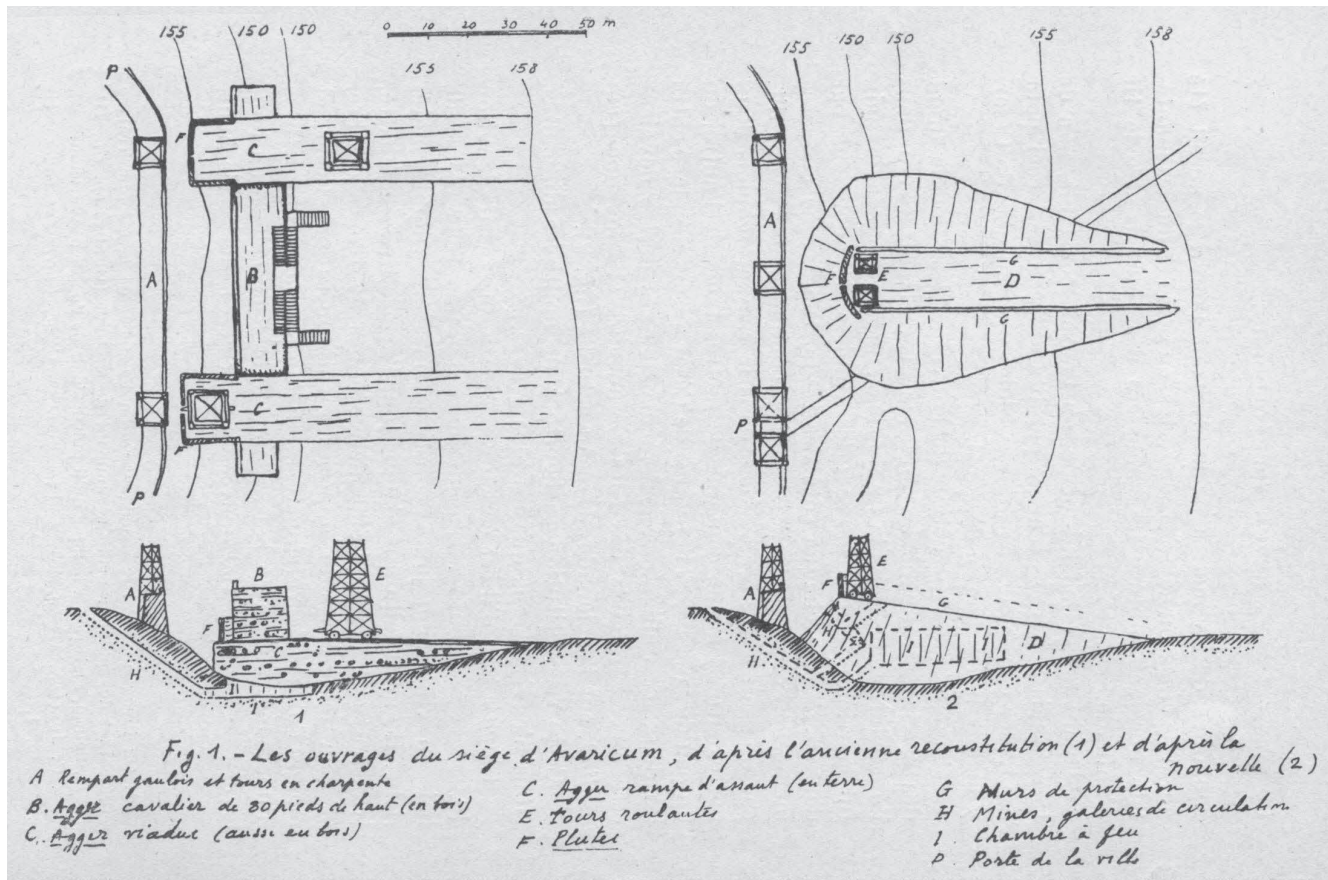 155 150 150
0 10 20 30 40 50 m
155 158
P
F
C
A
B
C
F
P
155 150 150 155 158
A
G
F E D
G
P
A F B E
C
H
I
1
A F E
G
H
I
D
2
Fig. 1. - Les ouvrages du siège d'Avaricum, d'après l'ancienne reconstitution (1) et d'après la
nouvelle (2)
A Rempart gaulois et tours en charpente
B. Agger cavalier de 80 pieds de haut (en bois)
C. Agger viaduc (aussi en bois)
C. Agger rampe d'assaut (en terre)
E. Tours roulantes
F. Plutei
G Murs de protection
H Mines, galeries de circulation
I Chambre à feu
P. Porte de la ville